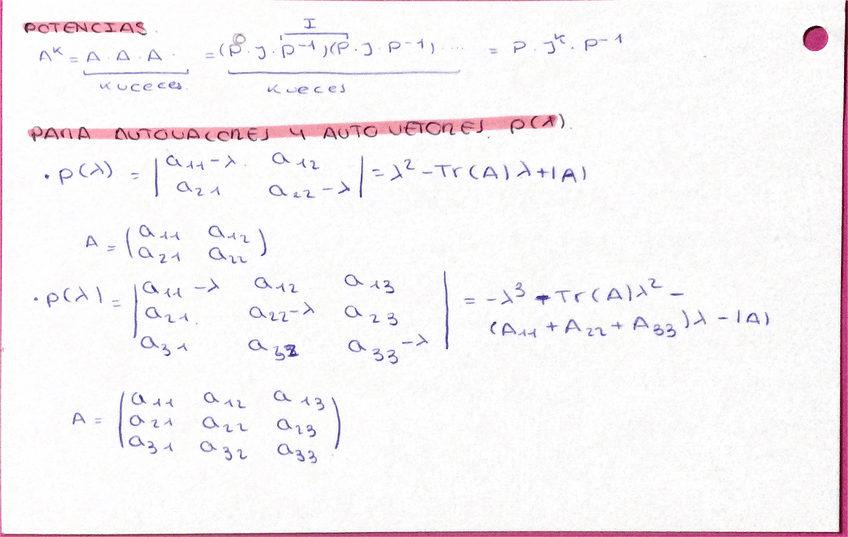 POTENCIAS.
I
A^K = A . A . A . = (P . J . P^-1)(P . J . P^-1) .... = P . J^K . P^-1
K VECES. K VECES
PARA AUTOVALORES Y AUTOVETORES P(λ).
· P(λ) = | a11-λ a12 | = λ² - Tr(A)λ + |A|
a21 a22-λ
A = ( a11 a12 )
a21 a22
· P(λ) = | a11-λ a12 a13 | = -λ³ + Tr(A)λ² -
a21 a22-λ a23 (A11 + A22 + A33)λ - |A|
a31 a32 a33-λ
A = ( a11 a12 a13 )
a21 a22 a23
a31 a32 a33